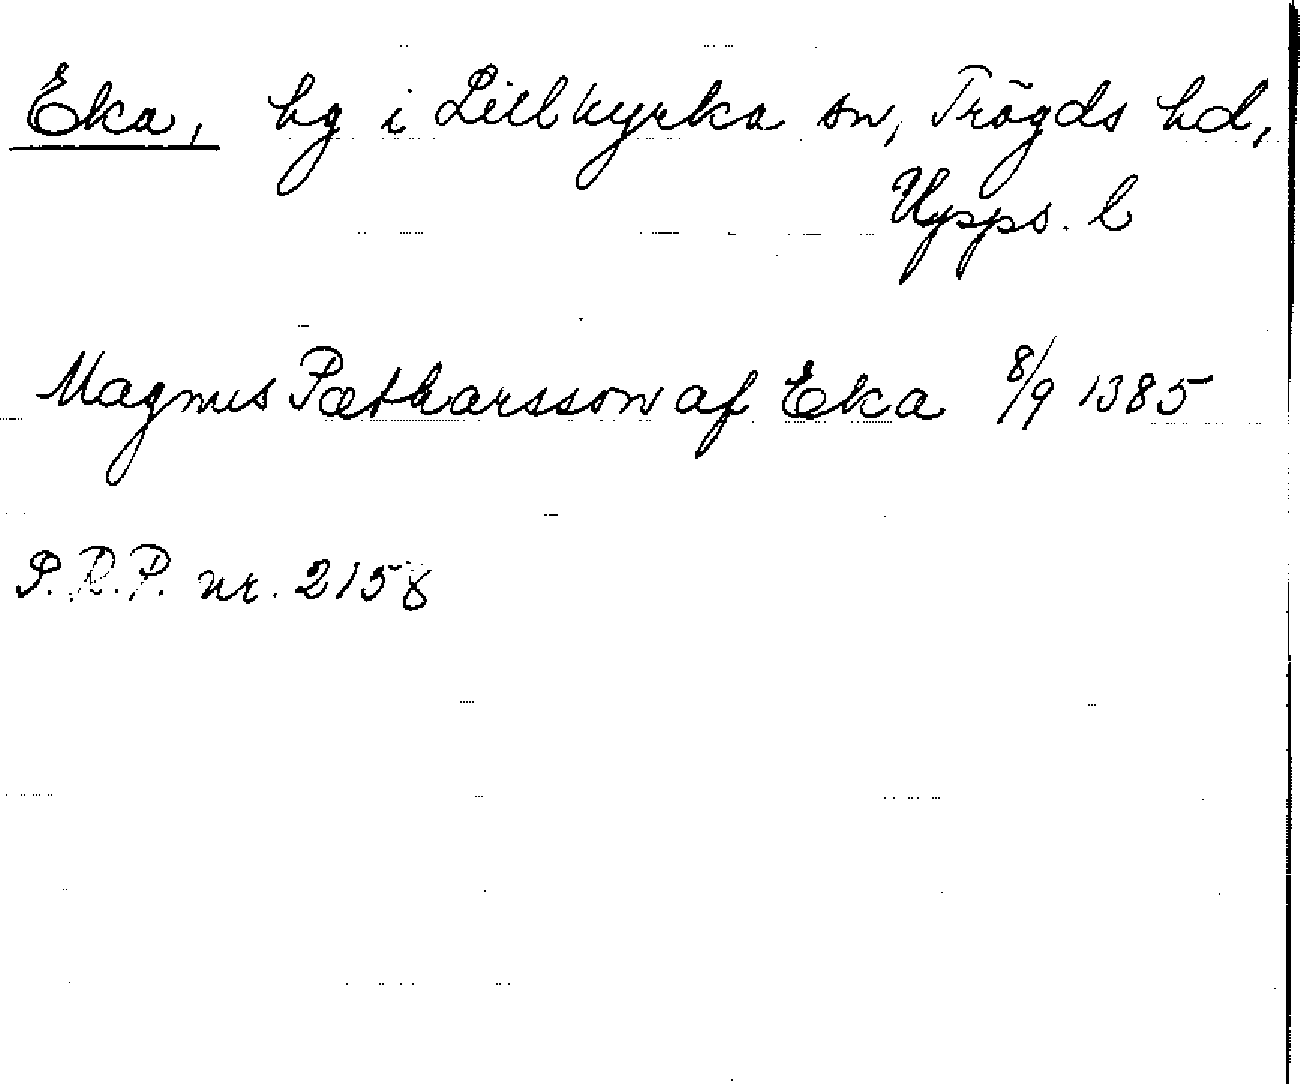 Eka, hg i Lillkyrka sn, Trögds hd,
Upps. l
Magnus Pætharsson af Eka 8/9 1385
S.R.P. nr. 2158